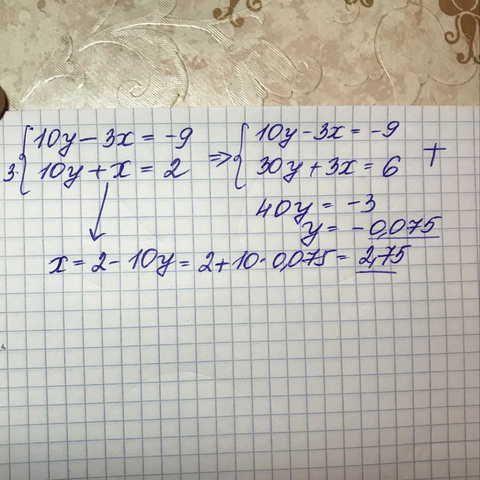 3. { 10y - 3x = -9 ⇒ { 10y - 3x = -9
10y + x = 2 30y + 3x = 6 +
40y = -3
y = -0,075
x = 2 - 10y = 2 + 10·0,075 = 2,75